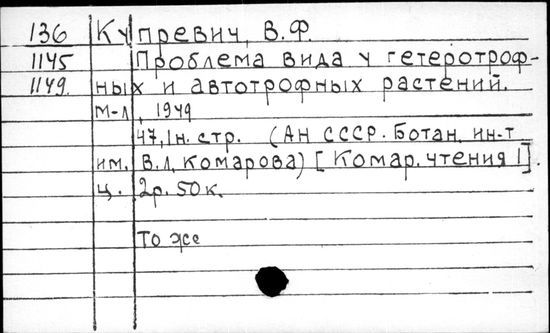 136 Купревич, В.Ф.
1145 Проблема вида у гетеротроф-
1149. ных и автотрофных растений.
М-Л, 1949
47,1н. стр. (АН СССР. Ботан. ин-т
им. В.Л. Комарова) [Комар. чтения 1].
Ц. 2р. 50к.
То же